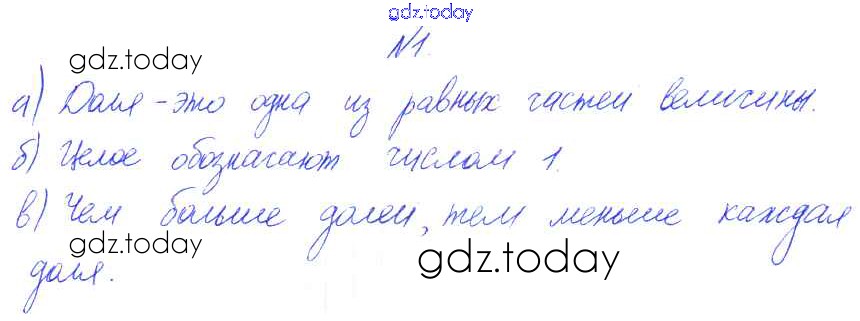 gdz.today
№1.
gdz.today
а) Доля - это одна из равных частей величины.
б) Целое обозначают числом 1.
в) Чем больше долей, тем меньше каждая
gdz.today
доля.
gdz.today